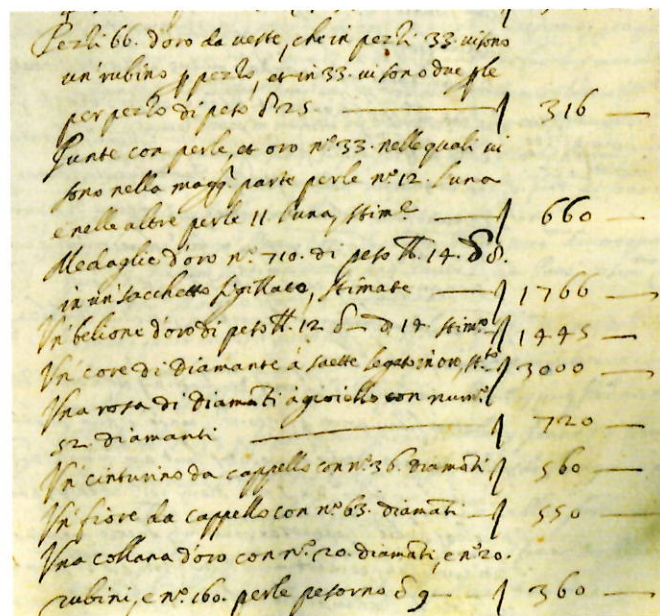 Pezzi 66. d'oro da veste, che in pezzi 33. vi sono
un' rubino p pezzo, et in 33. vi sono due ple
per pezzo di peso δ 25 — 316 —
Punte con perle, et oro n.º 33. nelle quali vi
sono nella magg.r parte perle n.º 12. l'una
e nelle altre perle 11 l'una, stim.e — 660 —
Medaglie d'oro n.º 710. di peso lt. 14. δ 8.
in un' sacchetto sigillato, stimate — 1766 —
Un' belione d'oro di peso lt. 12. δ — 14. stim.º 1445 —
Un' core di diamante à saette legato in oro, st.to 3000 —
Una rosa di diamāti à gioiello con num.º
52. diamanti — 720 —
Un' cinturino da cappello con n.º 36. diamāti 560 —
Un' fiore da cappello con n.º 63. diamāti — 550 —
Una collana d'oro con n.º 20. diamāti, e n.º 20.
rubini, e n.º 160. perle pesorno δ 9 — 360 —